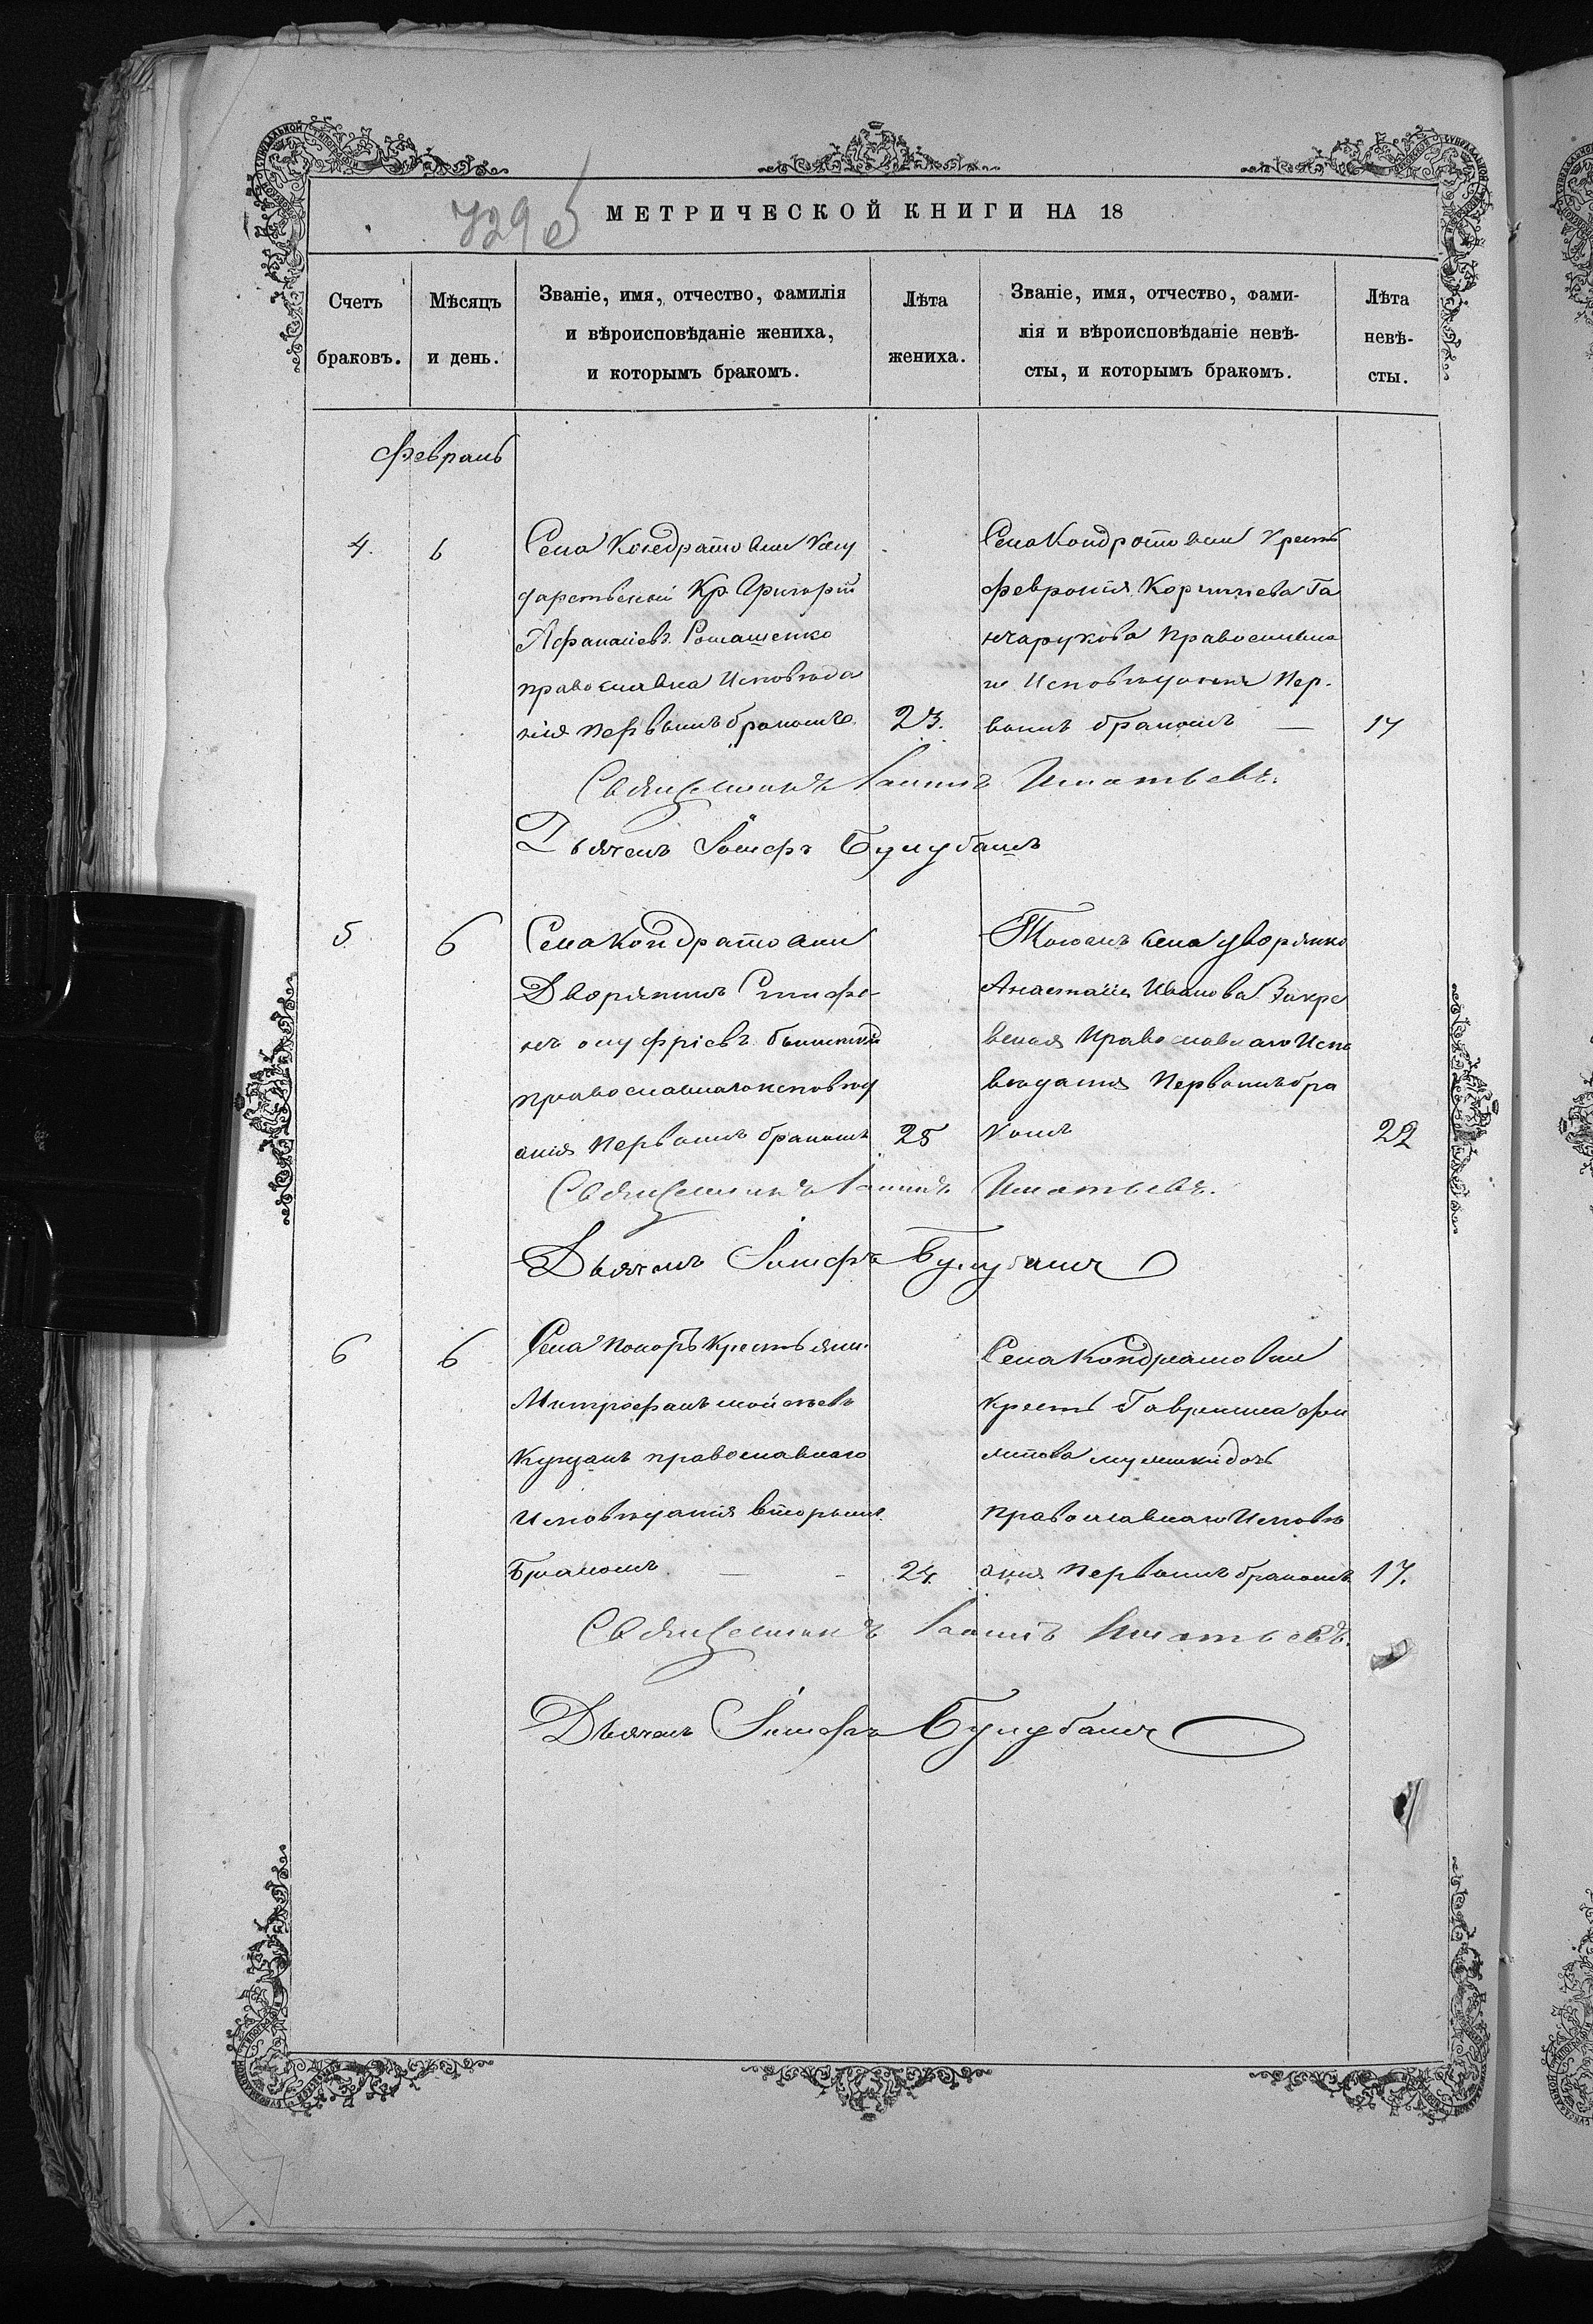 729 об
МЕТРИЧЕСКОЙ КНИГИ НА 18
Счетъ браковъ.
Мѣсяцъ и день.
Званіе, имя, отчество, фамилія
и вѣроисповѣданіе жениха,
и которымъ бракомъ.
Лѣта жениха.
Званіе, имя, отчество, фами-
лія и вѣроисповѣданіе невѣ-
сты, и которымъ бракомъ.
Лѣта невѣ-
сты.
Февраль
4. 6
Села Кондратовки
дарственний Кр. Григорій
Афанасіевъ Ромашенко
православна Исповѣда
нія первымъ бракомъ 23.
Села Кондратовки Крест
Феврониія Корниліева Га
нчарукова Православна
го Исповѣданія Пер.
вымъ бракомъ — 17
Священникъ Іоаннъ Игнатьевъ.
Дьячекъ Іосифъ Булубашъ
5. 6
Села Кондратовки
Дворянинъ
онуфріевъ
православнаго исповѣд
анія Первымъ бракомъ 25
Тогожъ села дворянка
Анастасія Иванова Закре
вская Православнаго Испо
вѣданія Первымъ бра
комъ 22
Священникъ Іоаннъ Игнатьевъ.
Дьячекъ Іосифъ Булубашъ
6 6
Села Крестьянин.
Митрофанъ моисеевъ
православнаго
Исповѣданія вторымъ
Бракомъ — - 24.
Села Кондратовки
Крест Гавриила Фи
липова дочь
православнаго Исповѣ
анія Первымъ бракомъ 17.
Священникъ Іоаннъ Игнатьевъ.
Дьячекъ Іосифъ Булубашъ